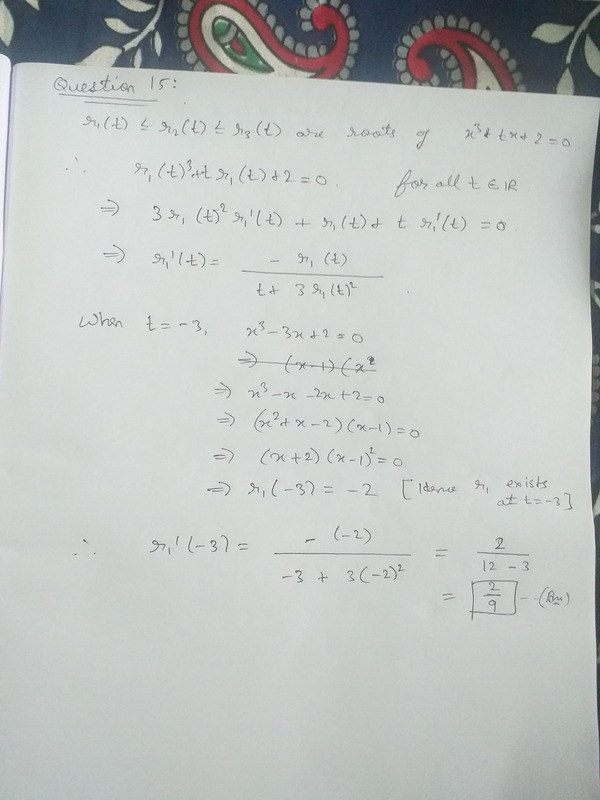 Question 15:
r₁(t) ≤ r₂(t) ≤ r₃(t) are roots of x³+tx+2=0.
∴ r₁(t)³+t r₁(t)+2=0. for all t ∈ IR
⇒ 3 r₁(t)² r₁'(t) + r₁(t) + t r₁'(t) = 0.
⇒ r₁'(t) = - r₁(t) / t + 3 r₁(t)² .
When t = -3, x³-3x+2=0
⇒ (x-1)(x²
⇒ x³-x-2x+2=0
⇒ (x²+x-2)(x-1)=0
⇒ (x+2)(x-1)²=0.
⇒ r₁(-3) = -2 [Hence r₁ exists
at t=-3]
∴ r₁'(-3) = -(-2) / -3 + 3(-2)² = 2 / 12 - 3
= 2/9 --